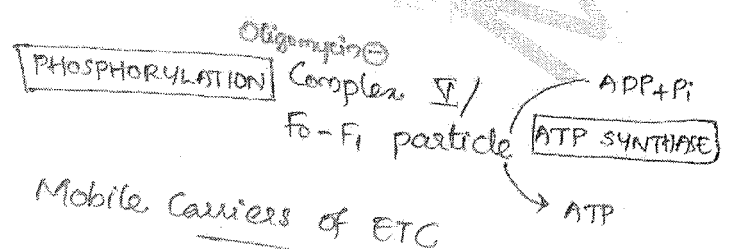 Oligomycin ⊖
PHOSPHORYLATION Complex V/ ADP+Pi
F0-F1 particle ATP SYNTHASE
ATP
Mobile Carriers of ETC